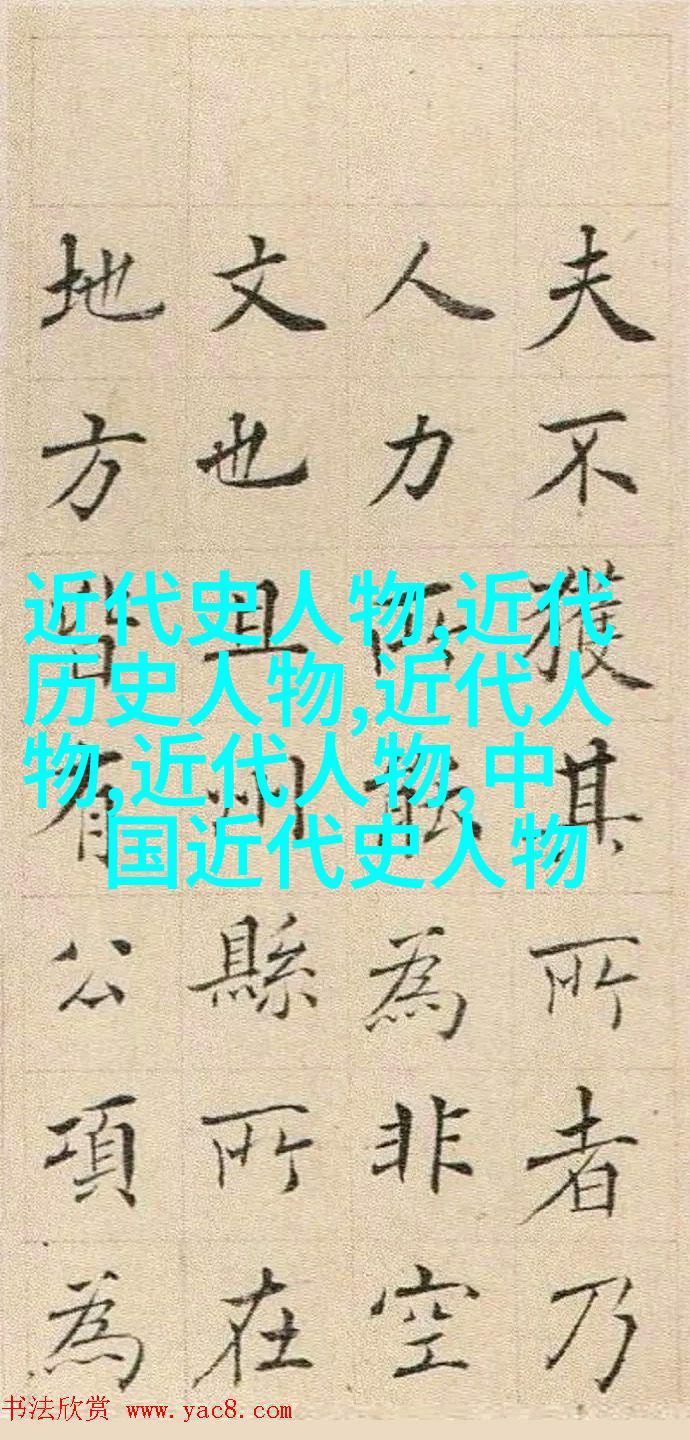 夫不獲其所者乃
人力所能為非空
文也且州縣所在
地方皆有公項為
近代史人物,近代
历史人物,近代人
物,近代人物,中
国近代史人物
书法欣赏 www.yac8.com